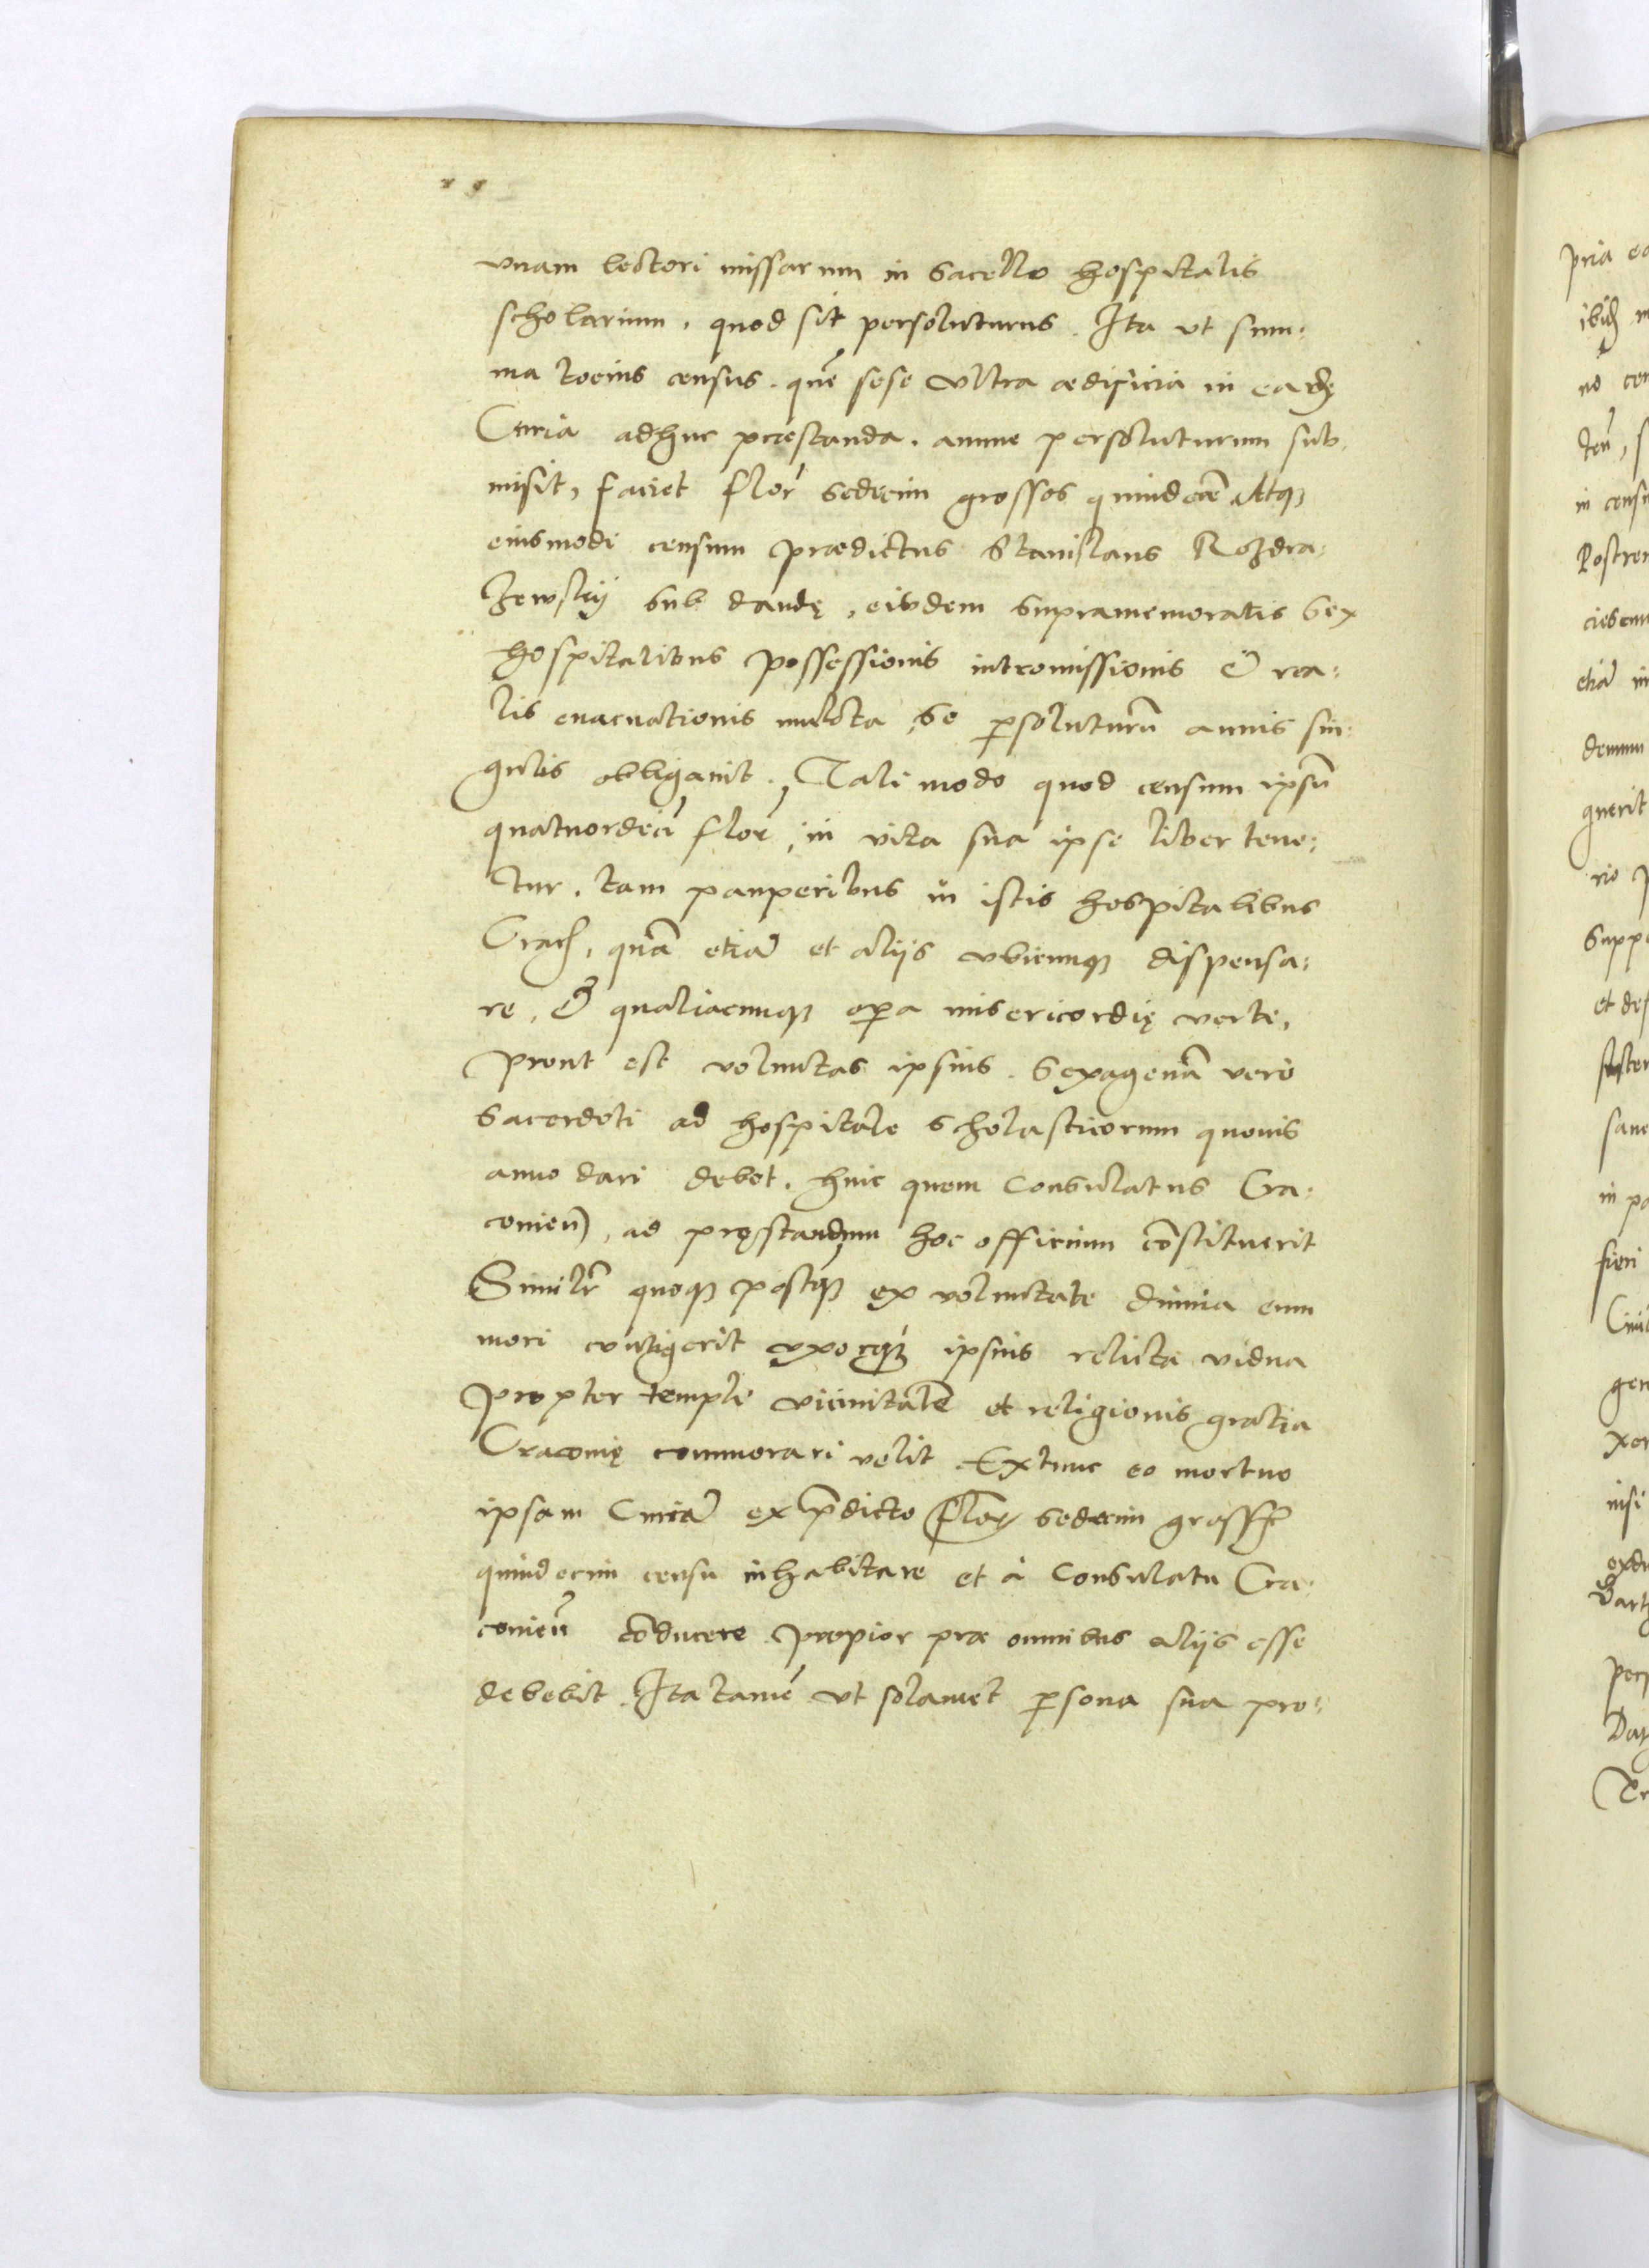 vnam lectori missarum in sacello hospitalis
scholarium, quod sit persoluturus. Ita vt sum:
ma tocius census, quē sese vltra aedificia in eadē
Curia adhuc praestanda, annue persoluturum sub
misit, faciet flor sedecim grossos quindecē Atq;
eiusmodi censum praedictus Stanislaus Rozdra:
zewskij sub dandę, eisdem supramemoratis sex
hospitalibus possessionis intromissionis & rea:
lis euacuationis mulcta, se ꝑsoluturū annis sin:
gulis obligauit. Tali modo quod censum ipsū
quatuordecī flor, in vita sua ipse liber tene:
tur, tam pauperibus in istis hospitalibus
Crac, quā etiā et alijs vbicunq; dispensa:
re, & qualiacunq; oꝑa misericordię verte,
prout est voluntas ipsius. Sexagenā vero
Sacerdoti ad hospitale scholasticorum quouis
anno dari debet, huic quem Consulatus Cra:
couień, ad pręstandum hoc officium cōstituerit
Similr quoq; postq; ex voluntate diuina eum
mori contigerit vxorq; ipsius relicta vidua
propter templi vicinitatē et religionis gratia
Cracouię commorari velit Extunc eo mortuo
ipsam Curiā ex p̄dicto flor sedecim grossor
quindecim censu inhabitare et à Consulatu Cra:
couień cōducere propior prae omnibus alijs esse
debebit. Ita tamē vt solamet ꝑsona sua pro: